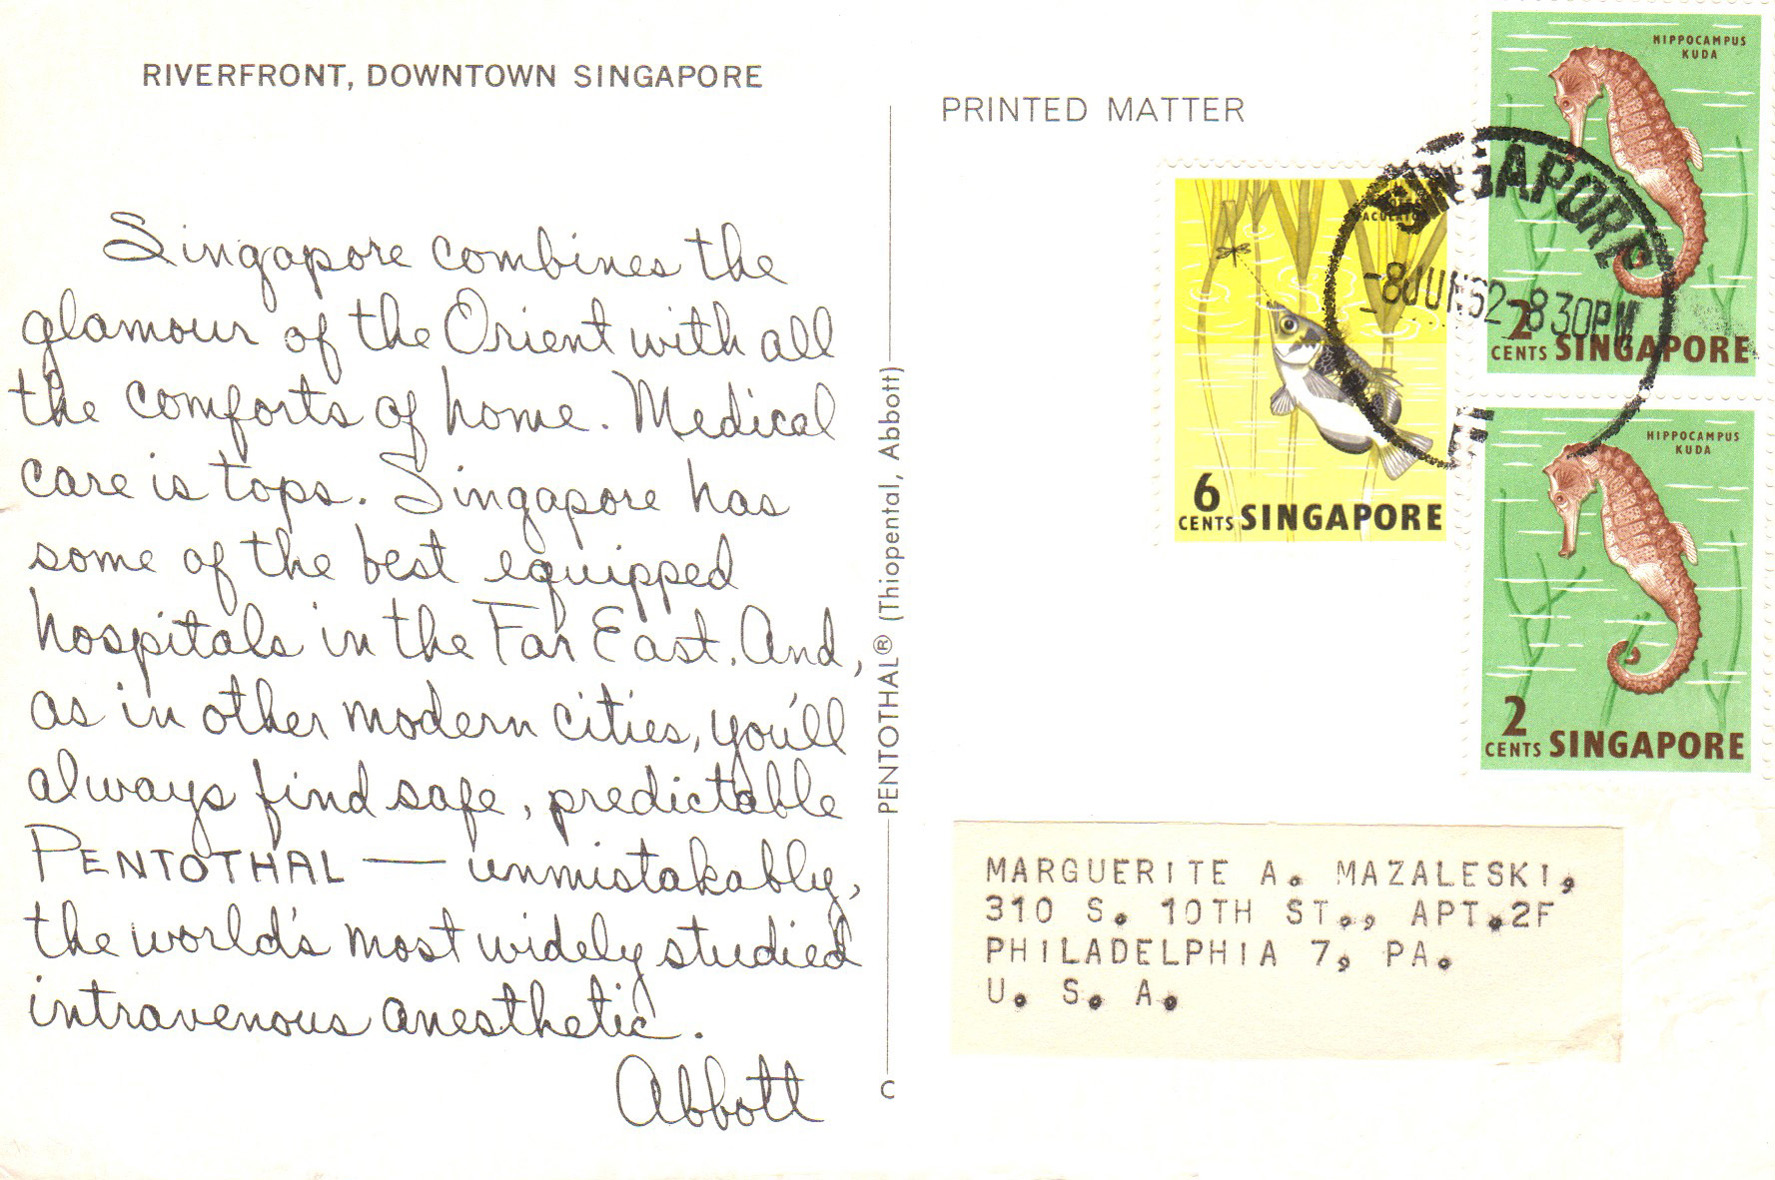 RIVERFRONT, DOWNTOWN SINGAPORE
Singapore combines the
glamour of the Orient with all
the comforts of home. Medical
care is tops. Singapore has
some of the best equipped
hospitals in the Far East. And,
as in other modern cities, you'll
always find safe, predictable
PENTOTHAL — unmistakably,
the world's most widely studied
intravenous anesthetic.
Abbott
PENTOTHAL® (Thiopental, Abbott)
C
PRINTED MATTER
6
CENTS SINGAPORE
HIPPOCAMPUS
KUDA
2
CENTS SINGAPORE
HIPPOCAMPUS
KUDA
2
CENTS SINGAPORE
SINGAPORE
-8JUN62-830PM
MARGUERITE A. MAZALESKI,
310 S. 10TH ST., APT.2F
PHILADELPHIA 7, PA.
U. S. A.